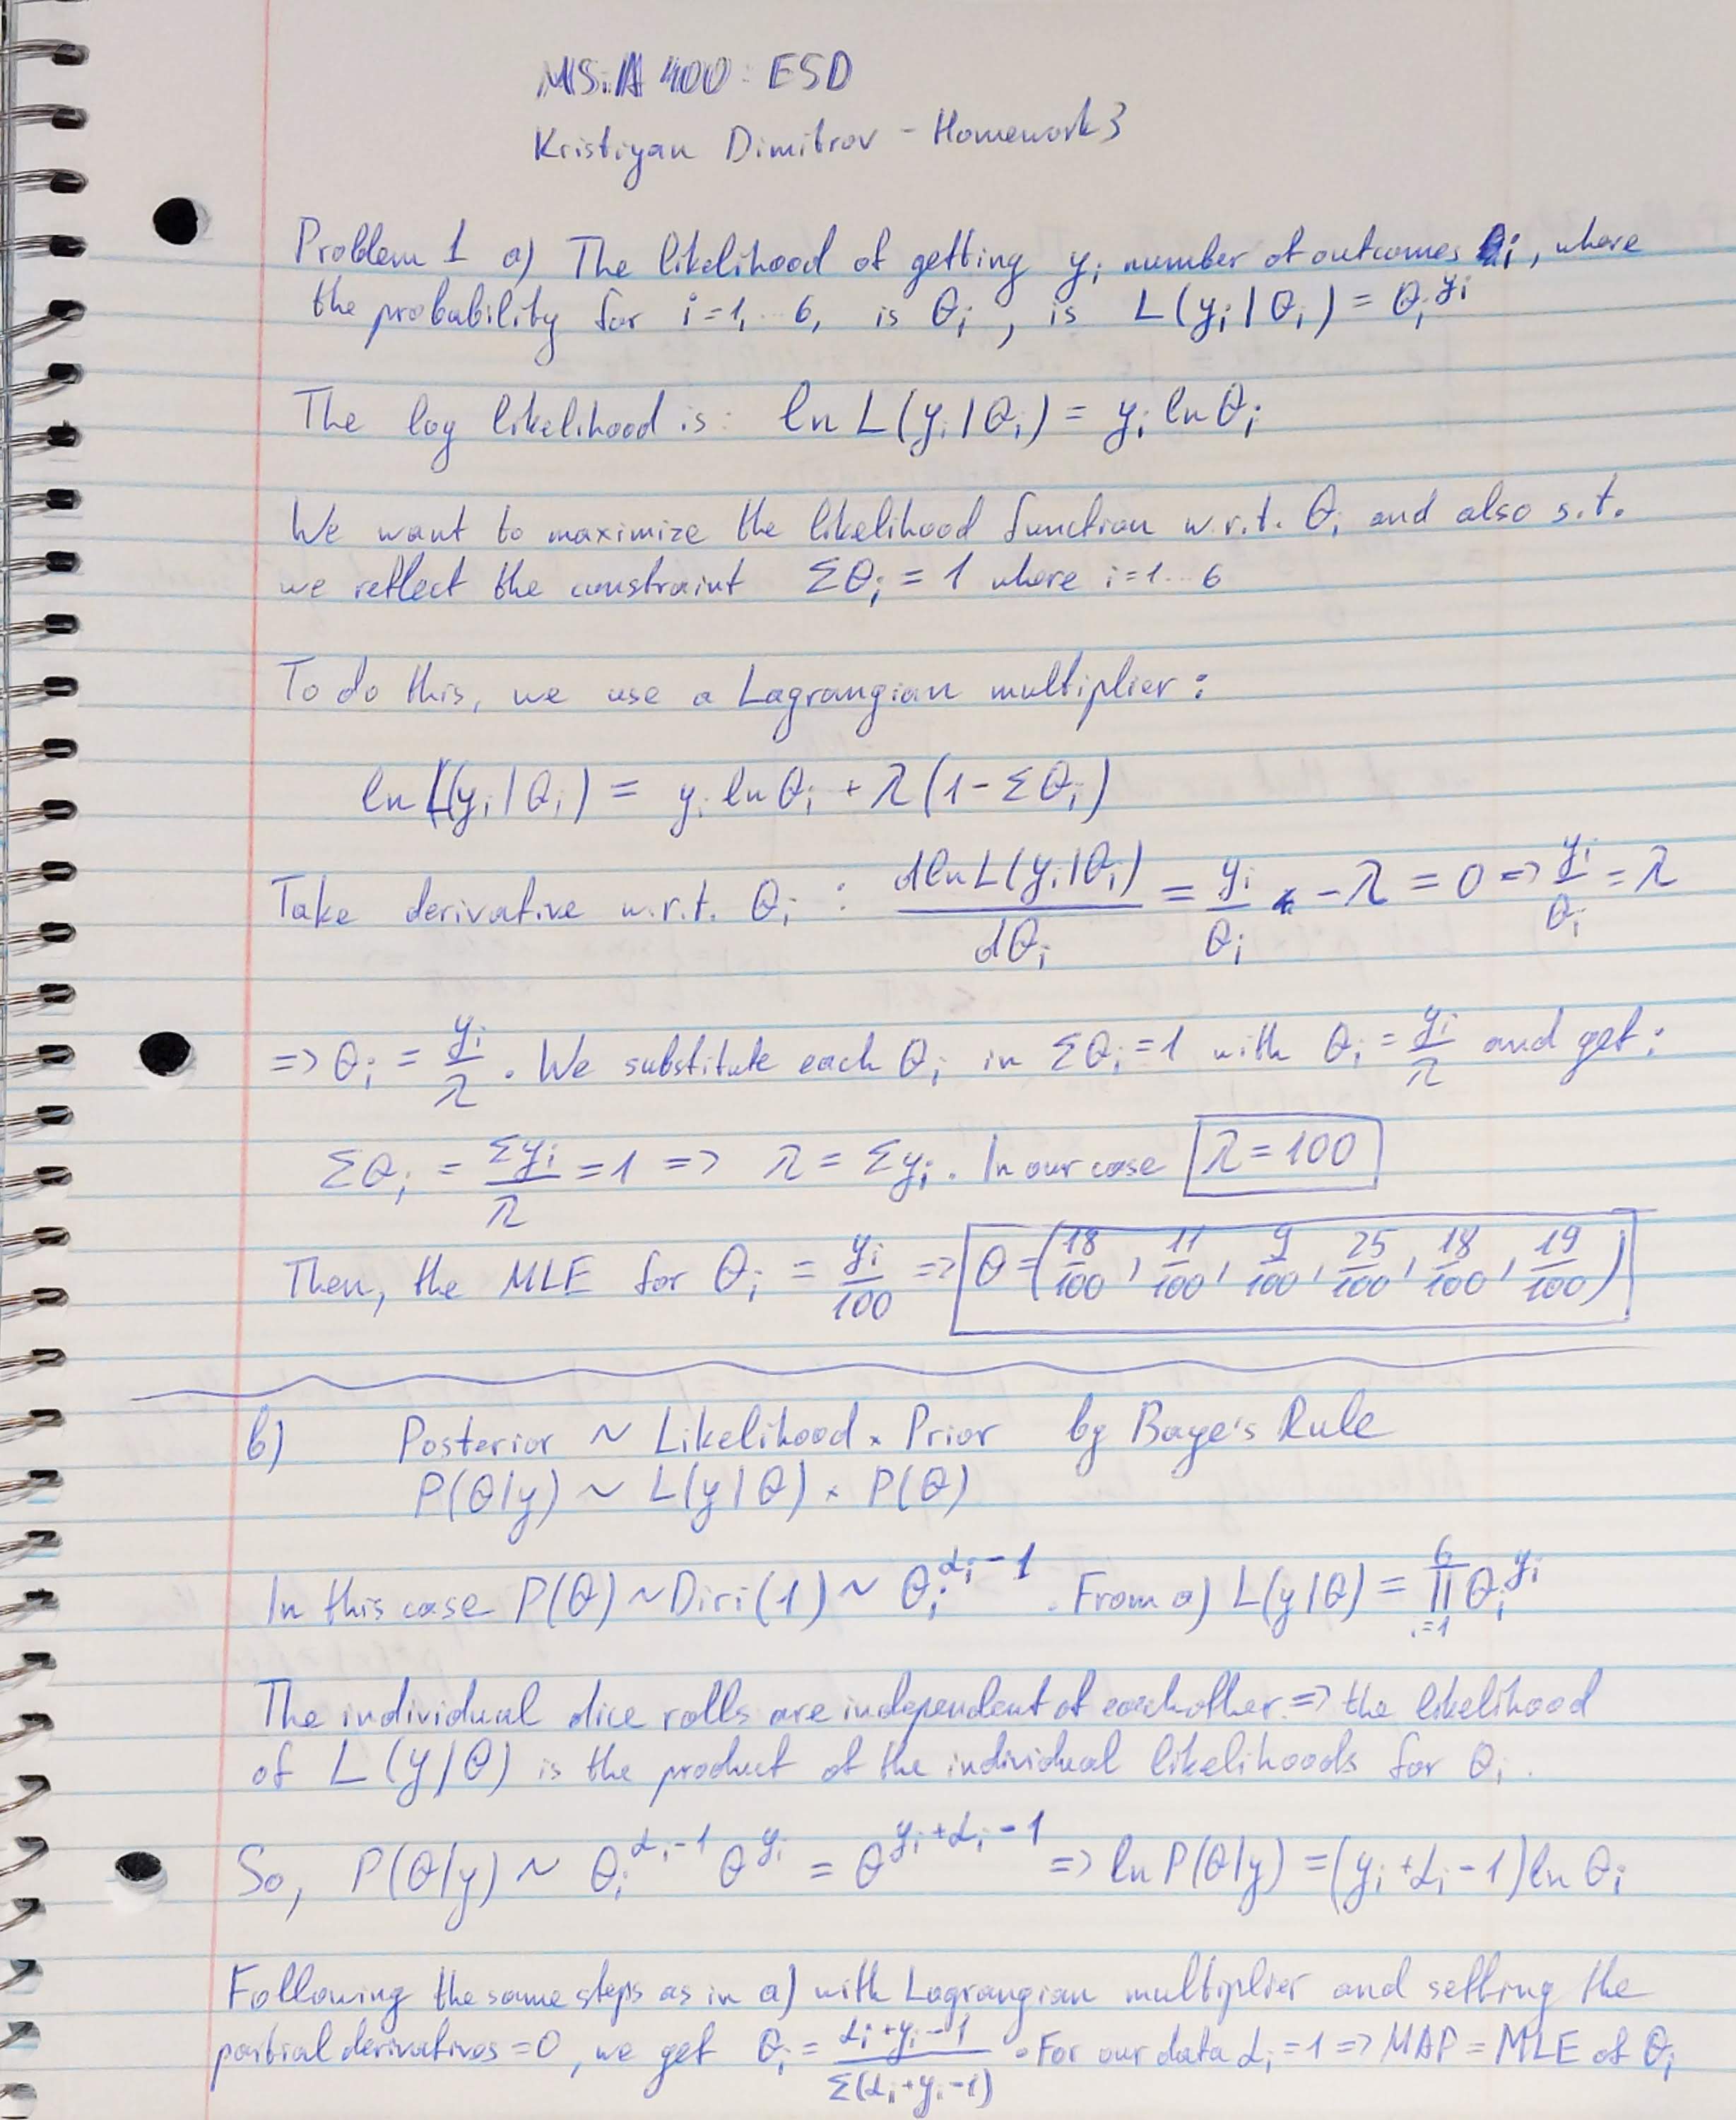 MSiA 400: ESD
Kristiyan Dimitrov - Homework 3
Problem 1 a) The likelihood of getting yᵢ number of outcomes i, where
the probability for i=1, ... 6, is θᵢ, is L(yᵢ|θᵢ) = θᵢ^yᵢ
The log likelihood is: ln L(yᵢ|θᵢ) = yᵢ ln θᵢ
We want to maximize the likelihood function w.r.t. θᵢ and also s.t.
we reflect the constraint Σθᵢ = 1 where i=1...6
To do this, we use a Lagrangian multiplier:
ln L(yᵢ|θᵢ) = yᵢ ln θᵢ + λ(1-Σθᵢ)
Take derivative w.r.t. θᵢ : dlnL(yᵢ|θᵢ)/dθᵢ = yᵢ/θᵢ - λ = 0 => yᵢ/θᵢ = λ
=> θᵢ = yᵢ/λ. We substitute each θᵢ in Σθᵢ=1 with θᵢ = yᵢ/λ and get:
Σθᵢ = Σyᵢ/λ = 1 => λ = Σyᵢ. In our case λ = 100
Then, the MLE for θᵢ = yᵢ/100 => θ = (18/100, 11/100, 9/100, 25/100, 18/100, 19/100)
b) Posterior ~ Likelihood × Prior by Baye's Rule
P(θ|y) ~ L(y|θ) × P(θ)
In this case P(θ) ~ Diri(1) ~ θᵢ^(αᵢ-1). From a) L(y|θ) = ∏_{i=1}^{6} θᵢ^yᵢ
The individual dice rolls are independent of each other => the likelihood
of L(y|θ) is the product of the individual likelihoods for θᵢ.
So, P(θ|y) ~ θᵢ^(αᵢ-1) θ^yᵢ = θ^(yᵢ+αᵢ-1) => ln P(θ|y) = (yᵢ+αᵢ-1) ln θᵢ
Following the same steps as in a) with Lagrangian multiplier and setting the
partial derivatives = 0, we get θᵢ = (αᵢ+yᵢ-1)/Σ(αᵢ+yᵢ-1). For our data αᵢ=1 => MAP = MLE of θᵢ